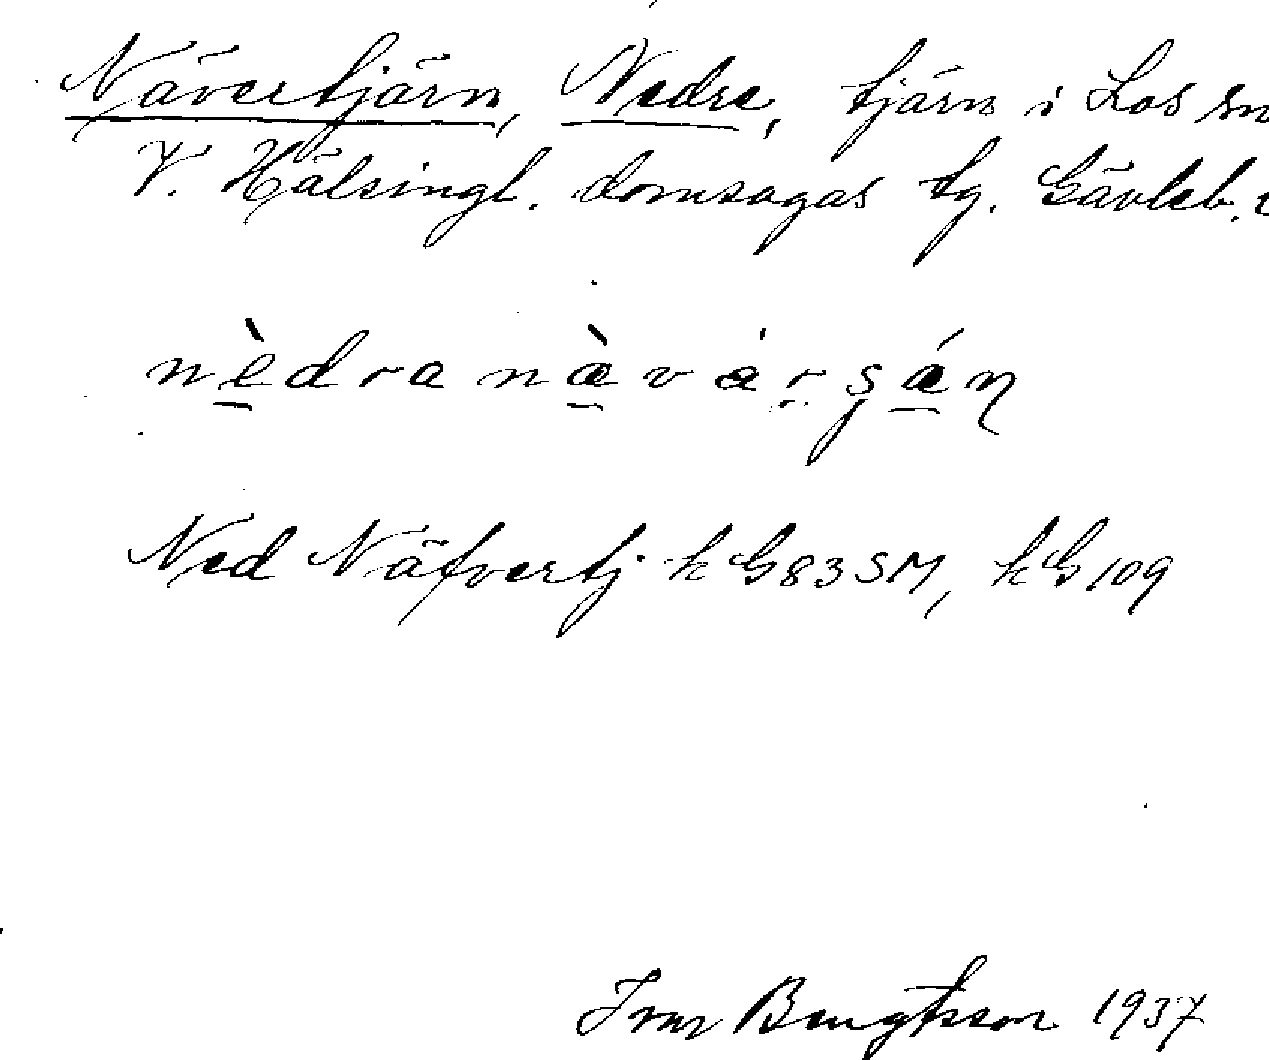 Nävertjärn, Nedre, tjärn i Los sn
V. Hälsingl. domsagas tg. Gävleb.
nèdra nævärşæɳ
Ned Näfvertj kG83SM, kG109
Bengtsson 1937